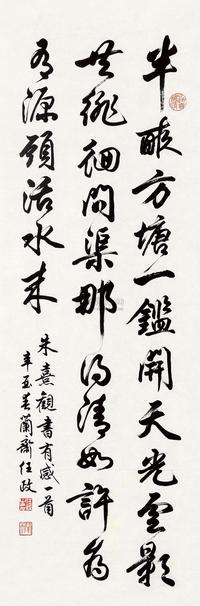 半畝方塘一鑑開天光雲影
共徘徊問渠那得清如許為
有源頭活水来
朱熹觀書有感一首
辛亥英蘭齋任政